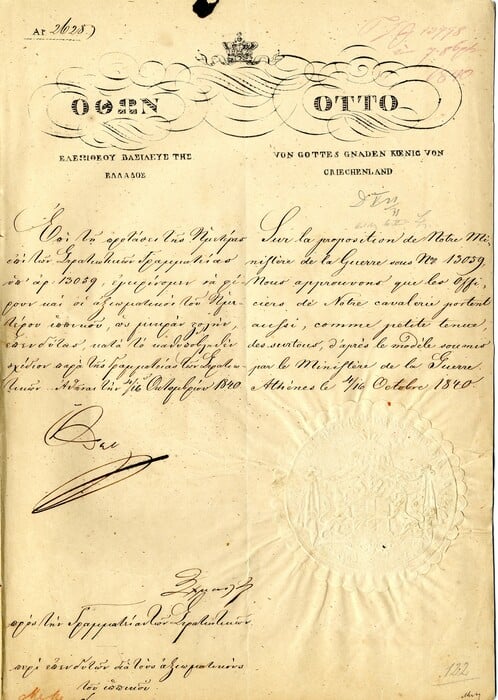 Αρ 26287
ΟΘΩΝ
ΕΛΕΩι ΘΕΟΥ ΒΑΣΙΛΕΥΣ ΤΗΣ
ΕΛΛΑΔΟΣ
OTTO
VON GOTTES GNADEN KŒNIG VON
GRIECHENLAND
Ἐπὶ τῇ προτάσει τῆς Ἡμετέρας
ἐπὶ τῶν Στρατιωτικῶν Γραμματείας
ὑπ' ἀρ. 13059, ἐγκρίνομεν νὰ φέ-
ρουν καὶ οἱ ἀξιωματικοὶ τοῦ Ἡμε-
τέρου ἱππικοῦ, ὡς μικρὰν στολὴν,
ἐπενδύτας, κατὰ τὸ καθυποβληθὲν
σχέδιον παρὰ τῆς Γραμματείας τῶν Στρατιω-
τικῶν. Ἀθῆναι τὴν 4/16 Ὀκτωβρίου 1840.
Sur la proposition de Notre Mi-
nistère de la Guerre sous Nº 13059.
Nous approuvons que les Offi-
ciers de Notre cavalerie portent
aussi, comme petite tenue,
des surtouts, d'après le modèle soumis
par le Ministère de la Guerre.
Athènes le 4/16 Octobre 1840
πρὸς τὴν Γραμματείαν τῶν Στρατιωτικῶν.
περὶ ἐπενδυτῶν διὰ τοὺς ἀξιωματικοὺς
τοῦ ἱππικοῦ
122